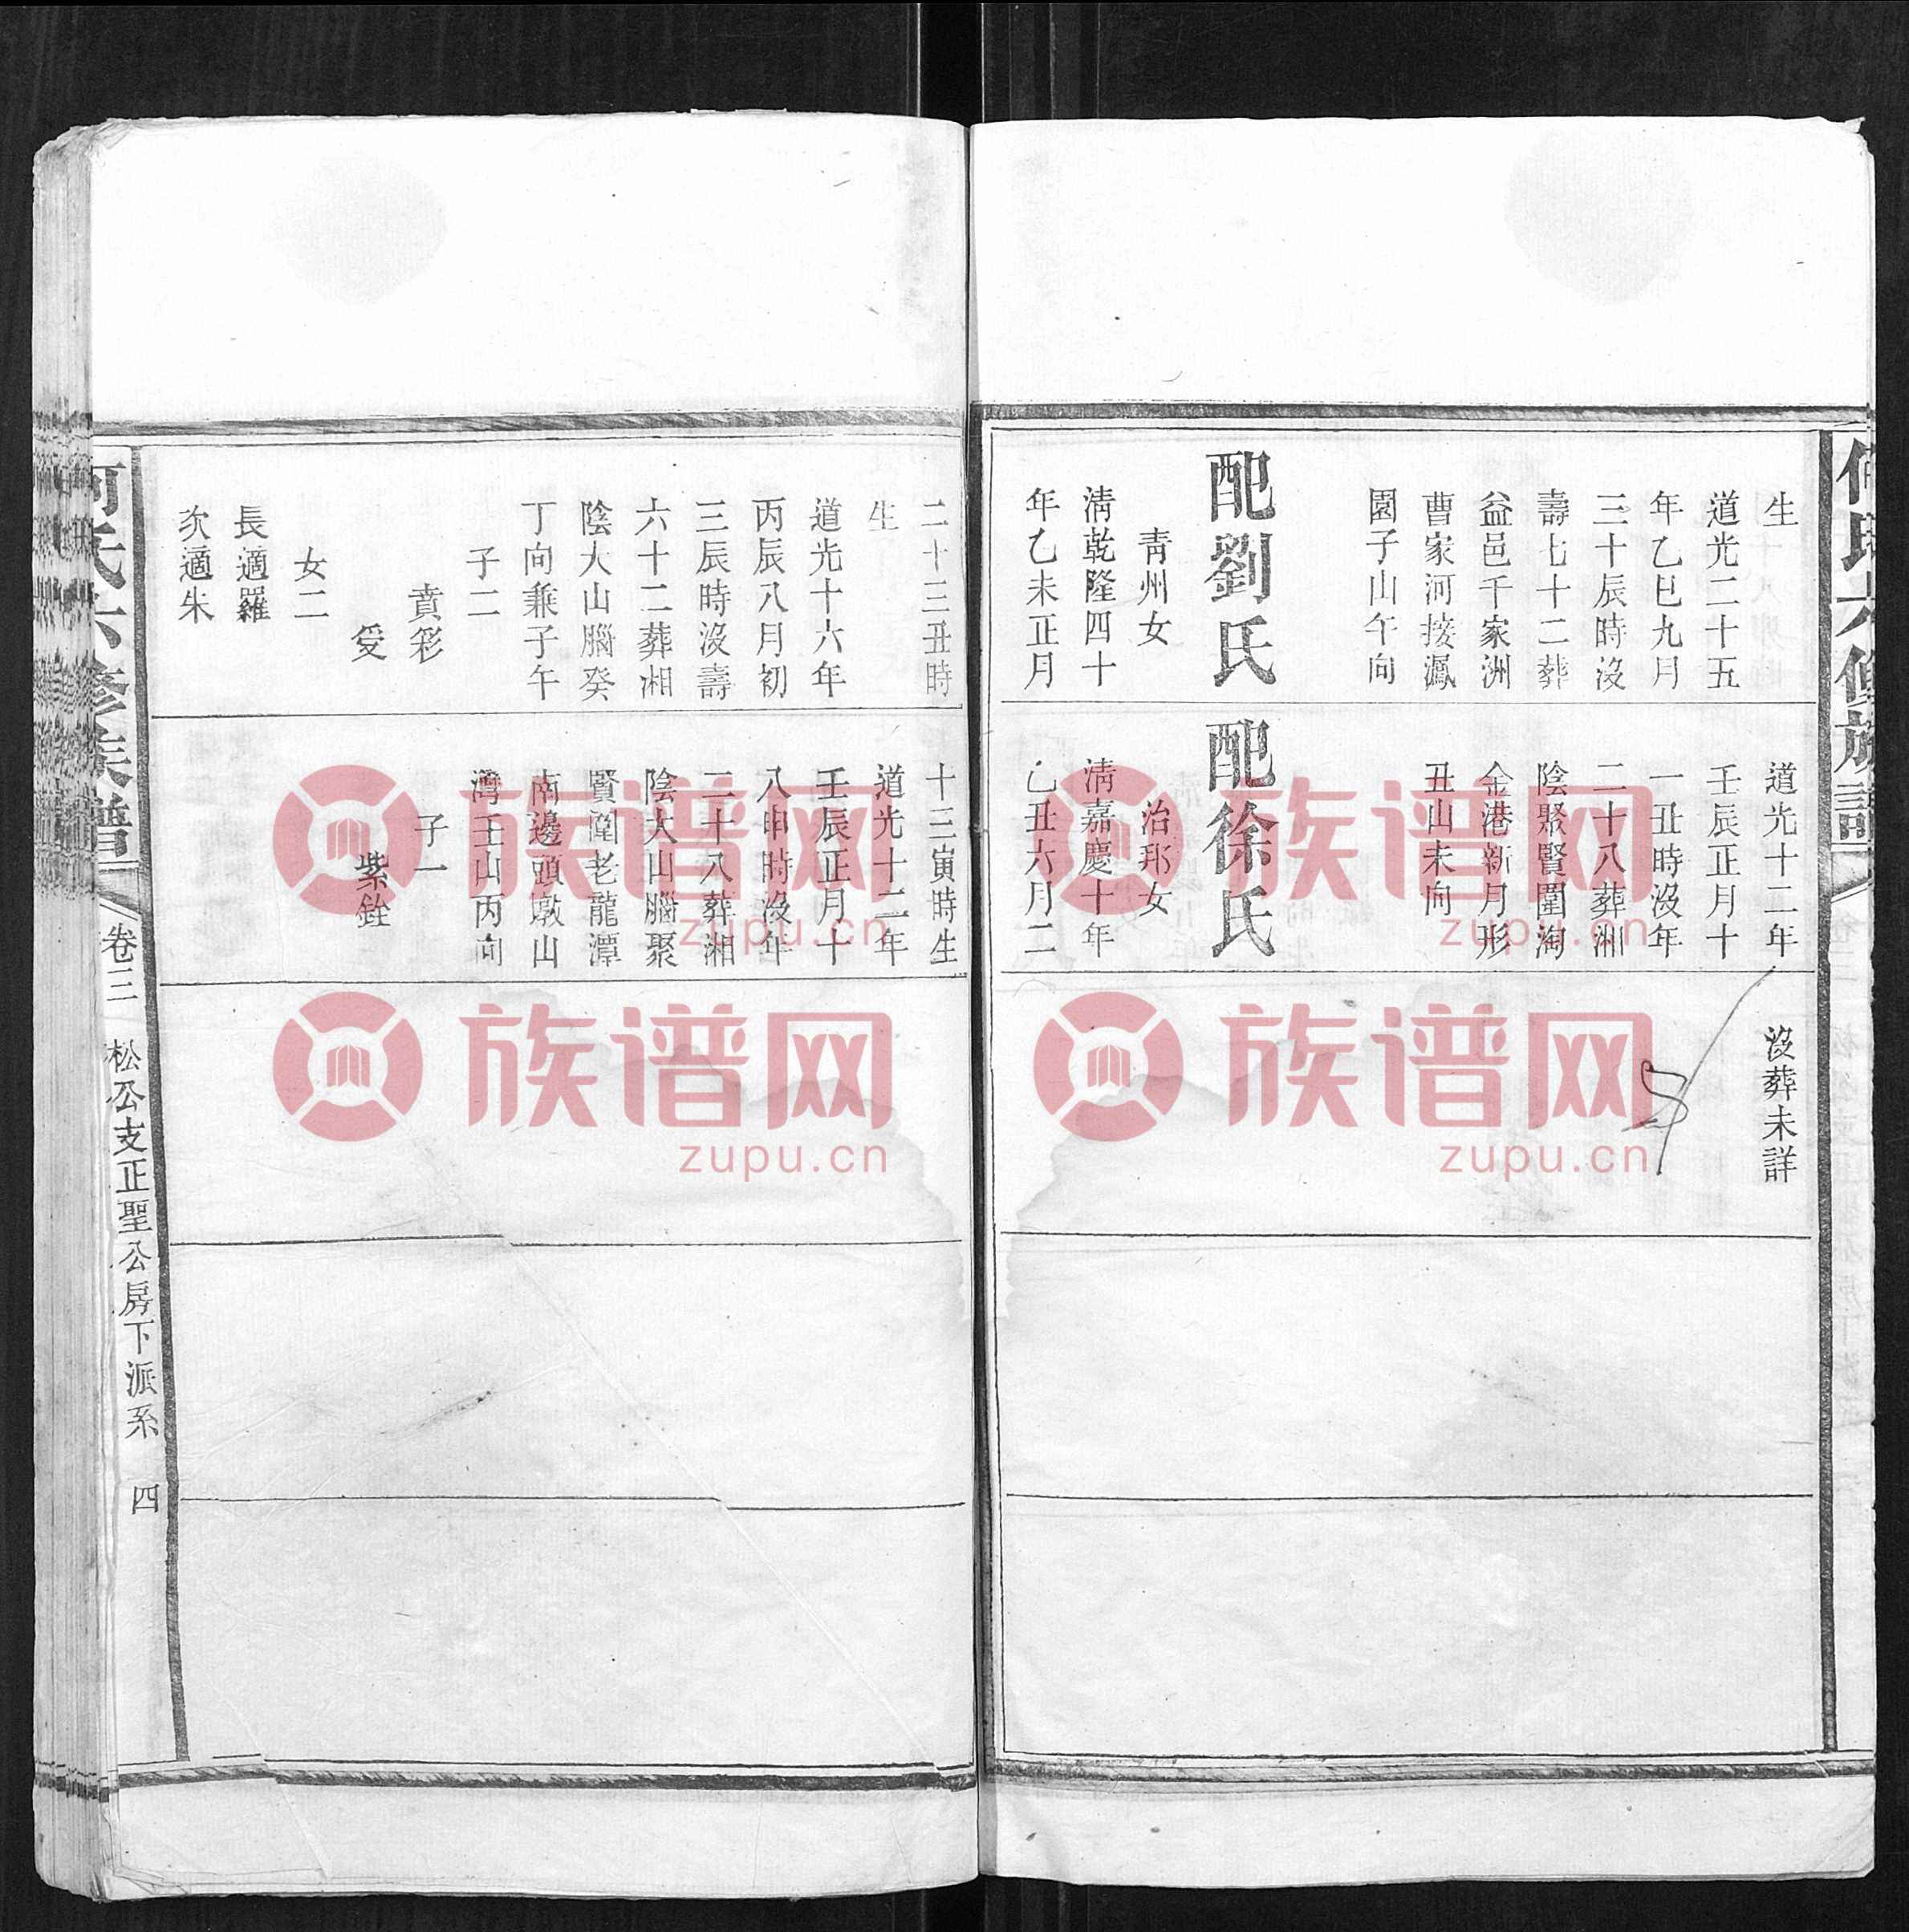 生
道光二十五
年乙巳九月
三十辰時沒
壽七十二葬
益邑千家洲
曹家河接瀛
園子山午向
配劉氏
青州女
淸乾隆四十
年乙未正月
道光十二年
壬辰正月十
一丑時沒年
二十八葬湘
陰聚賢圍淘
金港新月形
丑山未向
配徐氏
治邦女
淸嘉慶十年
乙丑六月二
沒葬未詳
二十三丑時
生
道光十六年
丙辰八月初
三辰時沒壽
六十二葬湘
陰大山腦癸
丁向兼子午
子二
賁彩
受
女二
長適羅
次適朱
十三寅時生
道光十二年
壬辰正月十
八申時沒年
二十八葬湘
陰大山腦聚
賢圍老龍潭
南邊頭墩山
灣壬山丙向
子一
紫銓
何氏六修族譜
卷三
松公支正聖公房下派系
四
族谱网
zupu.cn
族谱网
zupu.cn
族谱网
zupu.cn
族谱网
zupu.cn